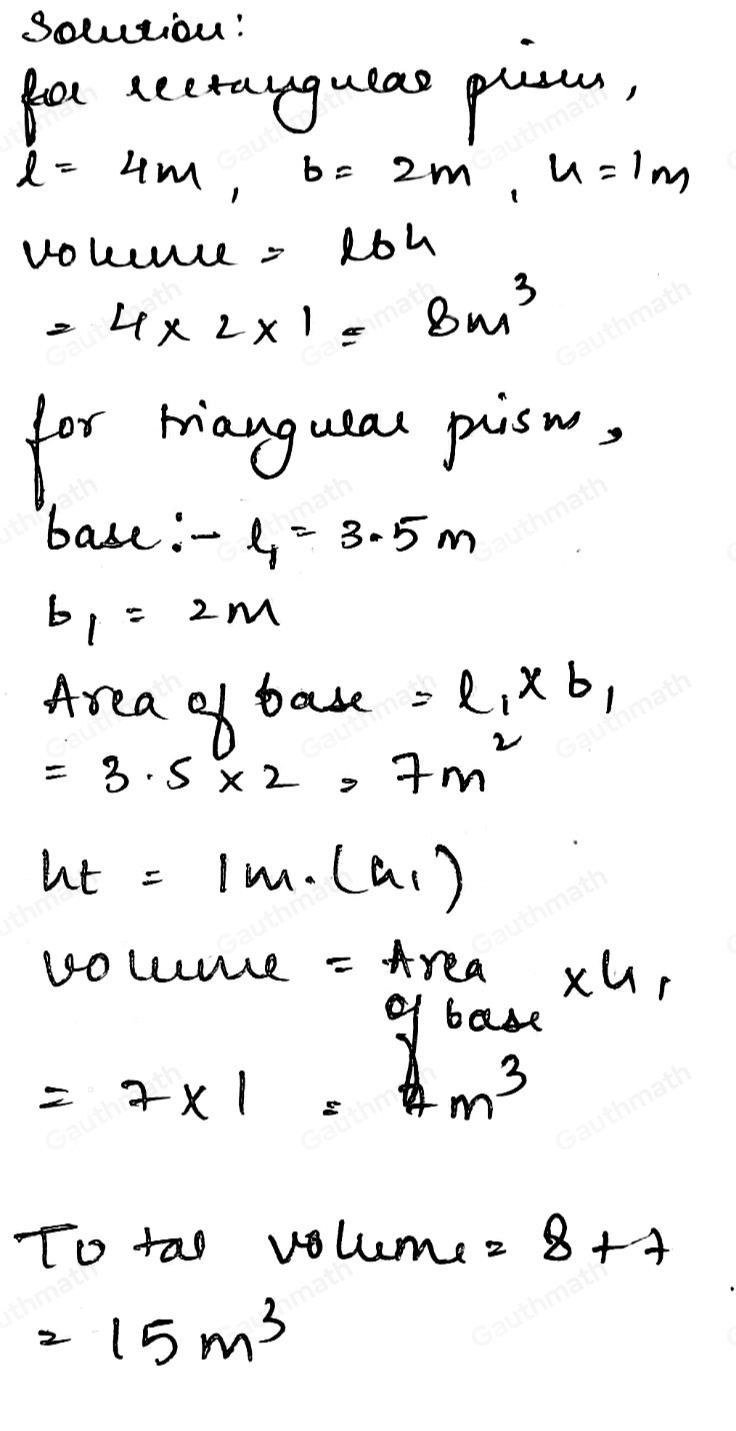 Solution:
for rectangular prism,
l = 4m, b = 2m, h = 1m
volume = lbh
= 4 x 2 x 1 = 8m³
for triangular prism,
base :- l₁ = 3.5 m
b₁ = 2m
Area of base = l₁ x b₁
= 3.5 x 2 = 7m²
ht = 1m. (h₁)
volume = Area of base x h₁
= 7 x 1 = 7m³
Total volume = 8 + 7
= 15 m³
Gauthmath